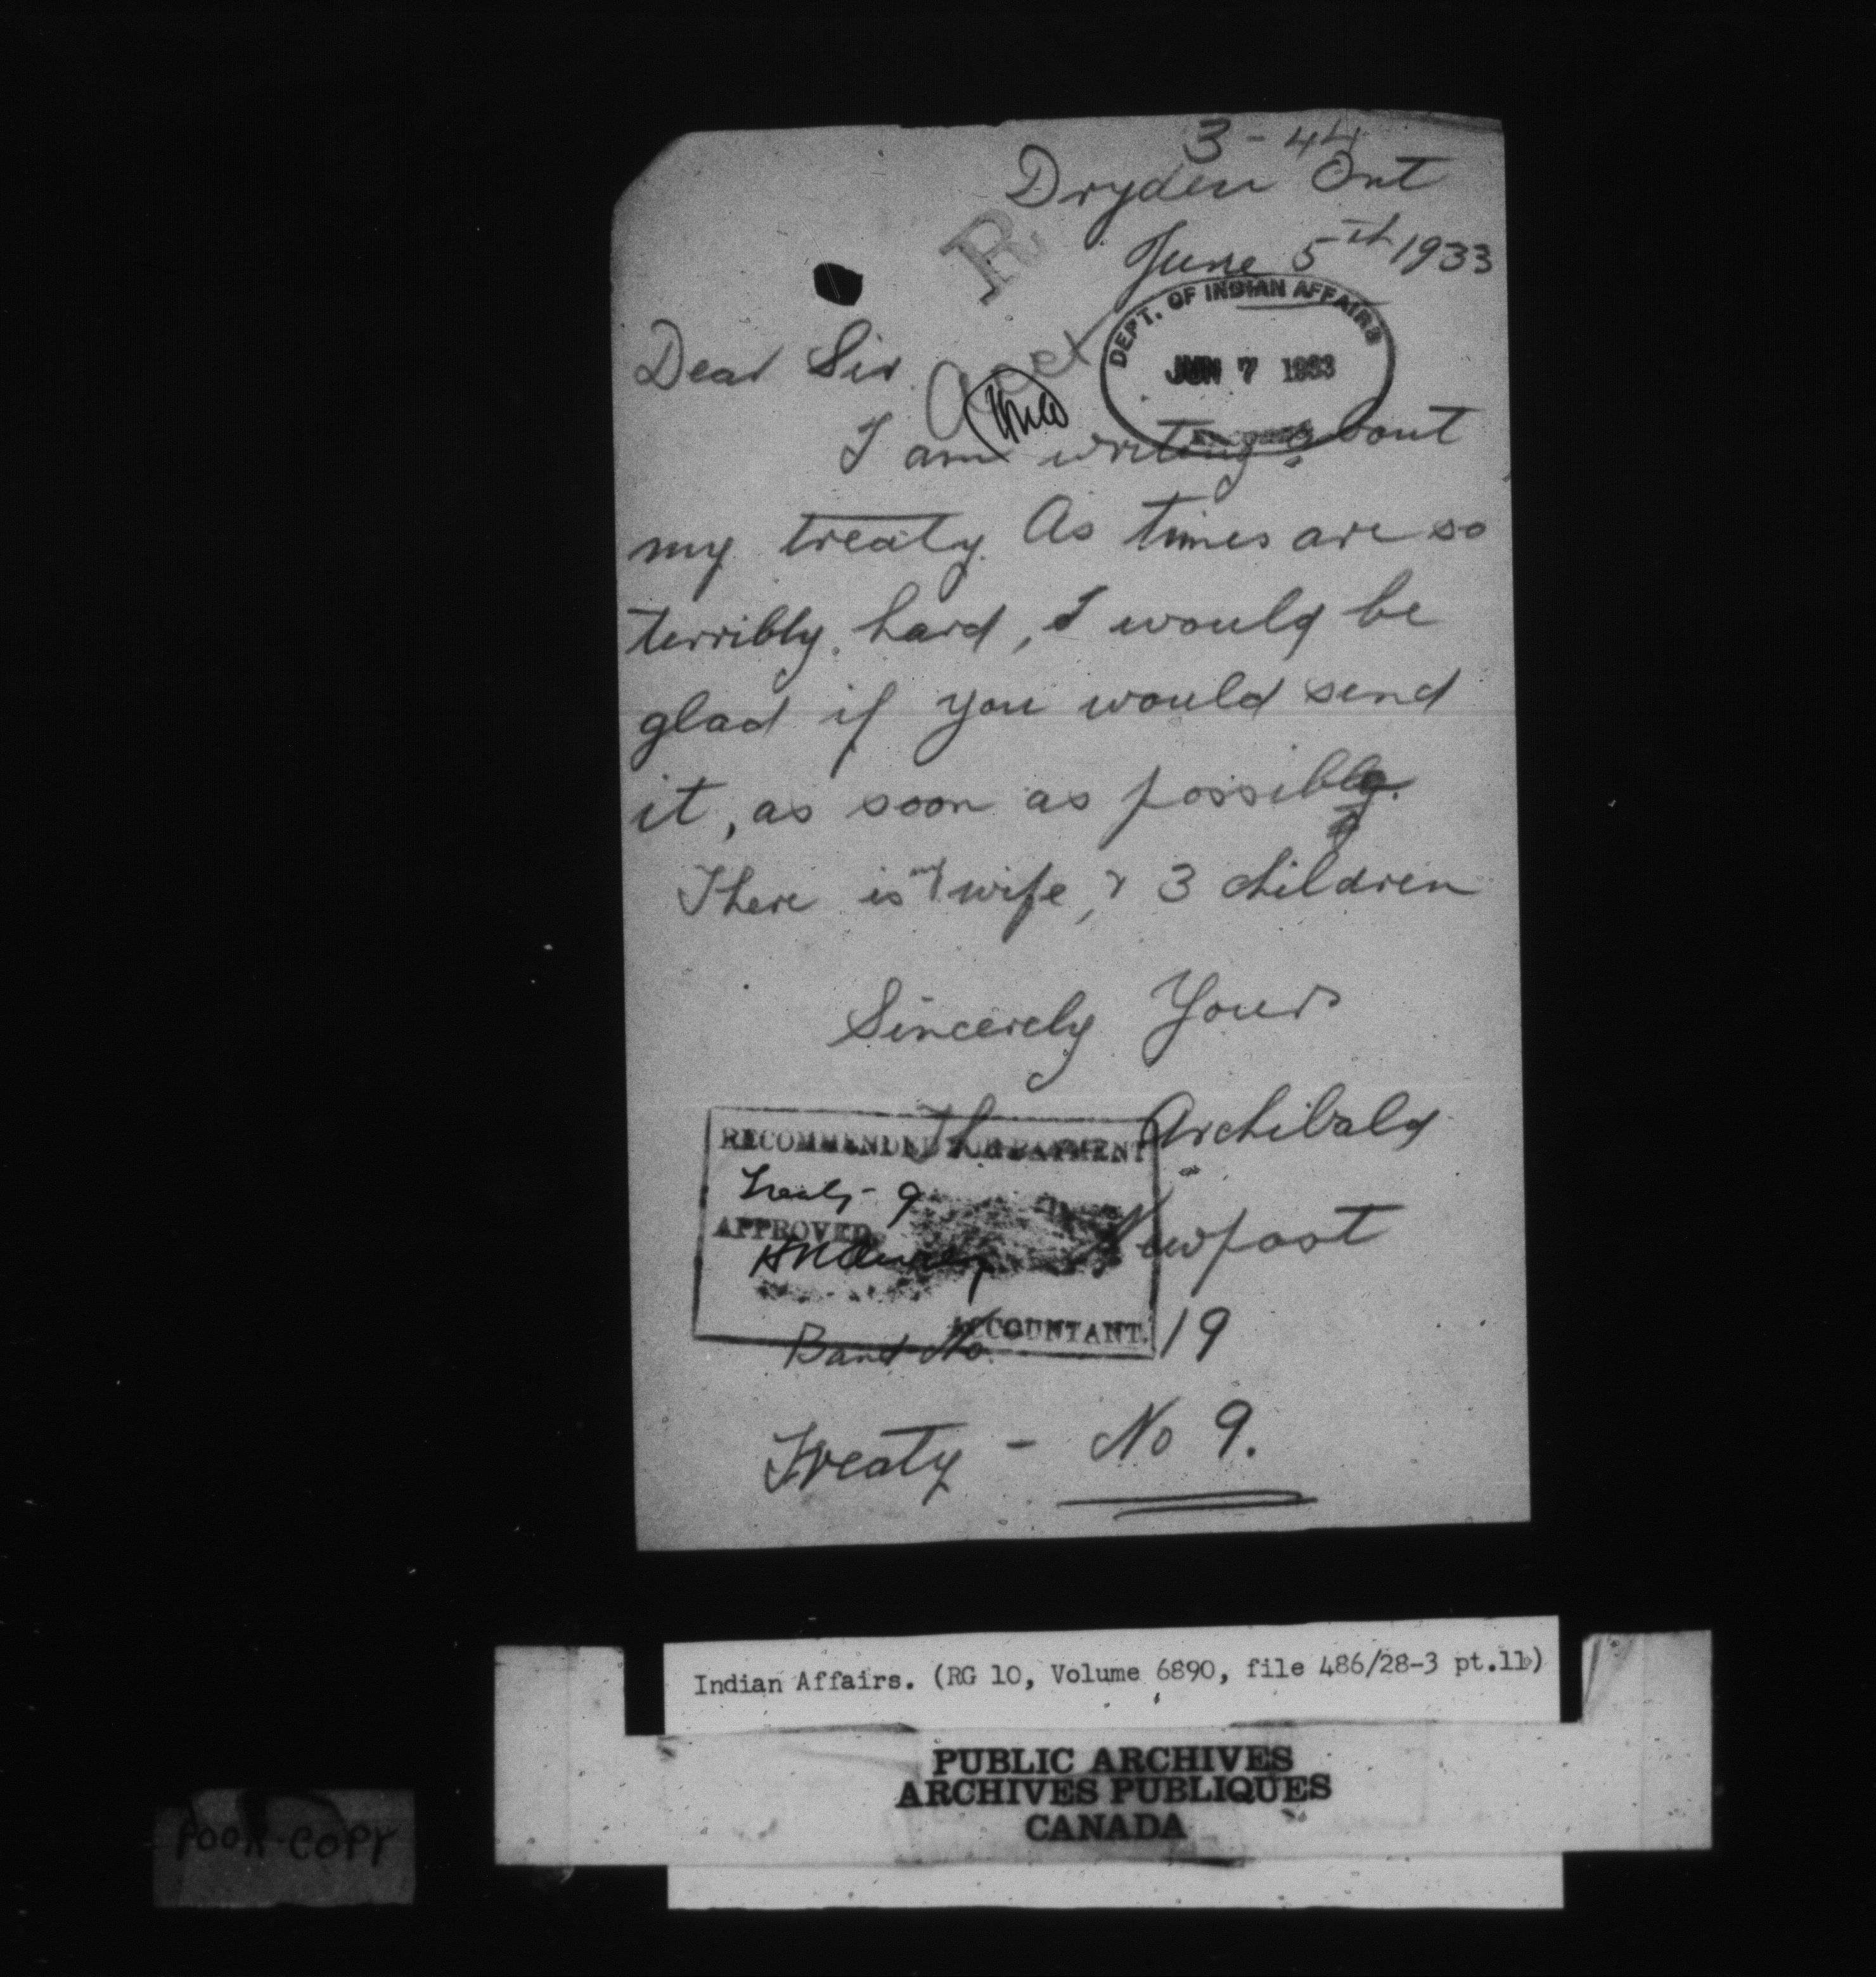 3-44
Dryden Ont
R
June 5th 1933
DEPT. OF INDIAN AFFAIRS
JUN 7 1933
Dear Sir.
Acct
I am writing about
my treaty. As times are so
terribly hard, I would be
glad if you would send
it, as soon as possibly.
There is my wife, & 3 children
Sincerely Yours
Archibald
RECOMMENDED FOR PAYMENT
Treaty - 9
APPROVED
Newpost
ACCOUNTANT.
Band No. 19
Treaty - No 9.
Indian Affairs. (RG 10, Volume 6890, file 486/28-3 pt.11)
PUBLIC ARCHIVES
ARCHIVES PUBLIQUES
CANADA
POOR COPY